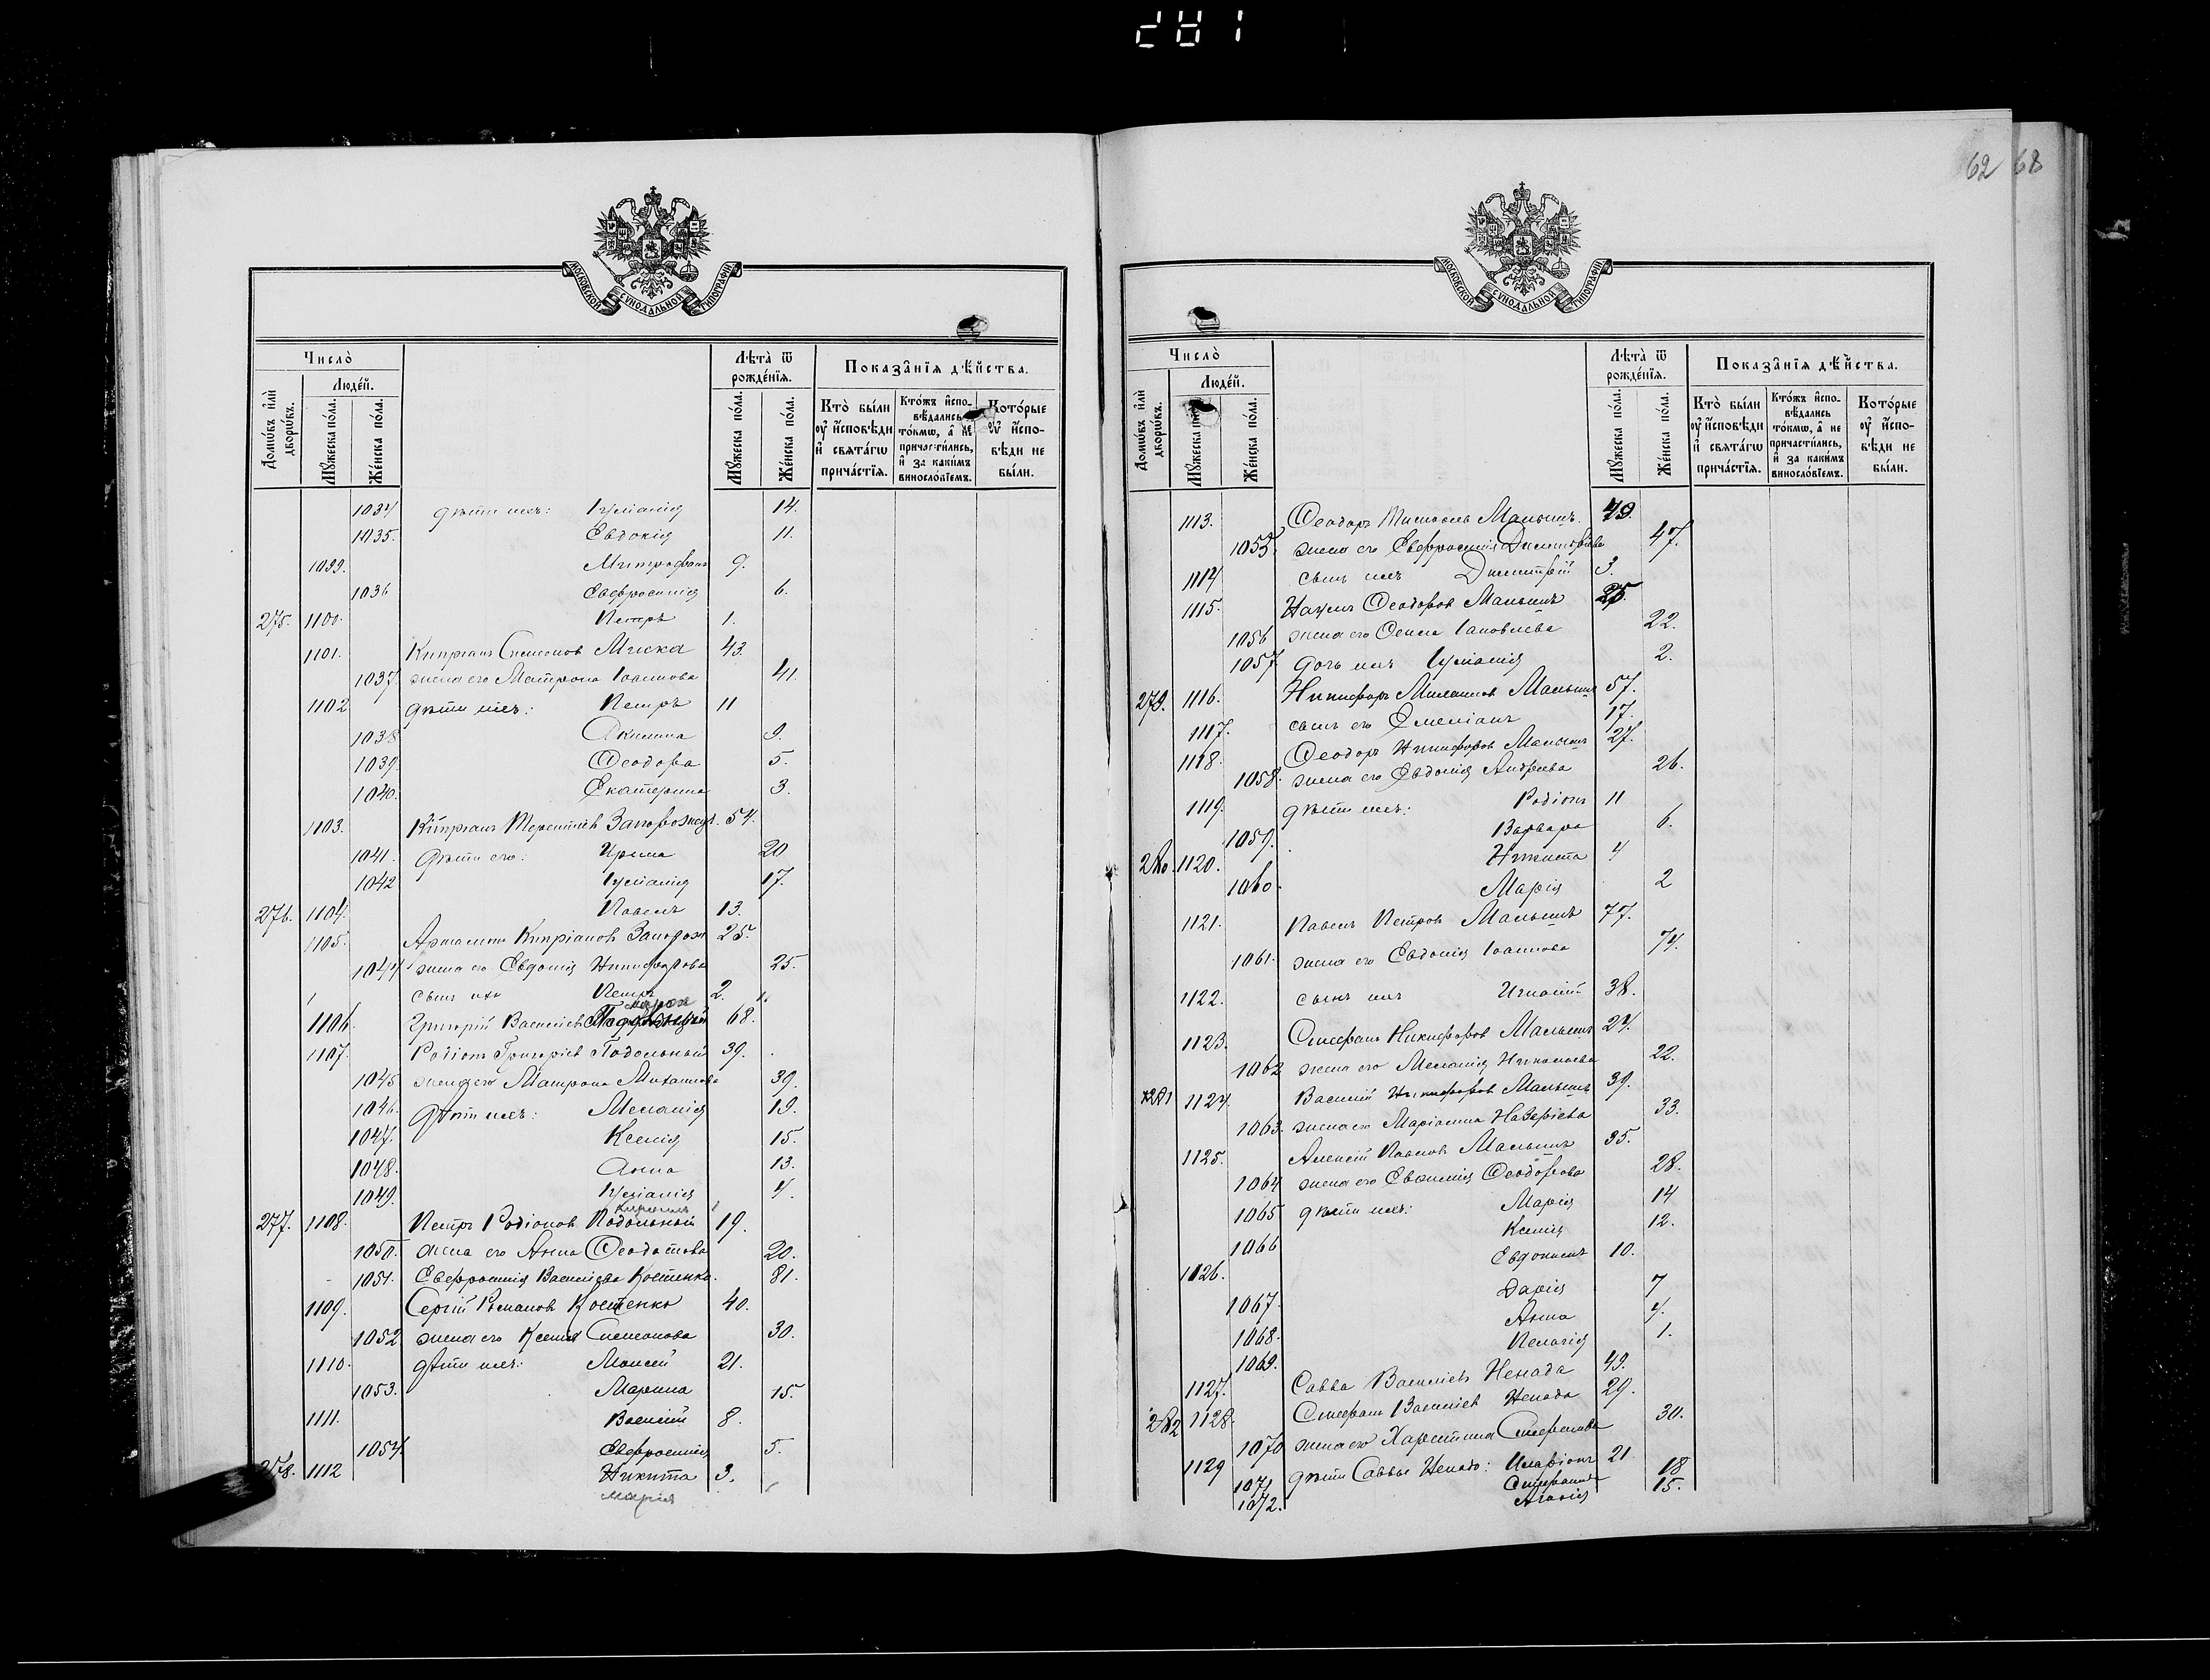 281
62 68
МОСКОВСКОЙ СѴНОДАЛЬНОЙ ТИПОГРАФІИ
Число̀
Людéй.
Домѡ́въ и҆лѝ дворѡ́въ.
Мꙋ́жеска по́ла.
Же́нска по́ла.
Лѣта̀ ѿ рожде́нїѧ.
Мꙋ́жеска по́ла.
Же́нска по́ла.
Показа̑нїѧ дѣ́йства.
Кто̀ бы́ли оу҆ и҆́сповѣди и҆ свѧта́гѡ прича́стїѧ.
Кто́жъ и҆спо-вѣ́дались то́кмѡ, а҆ не причасти́лись, и҆ за каки́мъ виносло́вїемъ.
Кото́рые оу҆ и҆́спо-вѣди не бы́ли.
1034 дѣти ихъ: Іуліанія 14.
1035. Евдокія 11.
1099. Митрофанъ 9.
1036 Евфросинія 6.
275. 1100. Петръ 1.
1101. Кипріанъ Симеонов Мшка 43.
1037. жена его Матрона Іоаннова 41.
1102 дѣти ихъ: Петръ 11
1038 Акилина 9.
1039. Ѳеодора 5.
1040. Екатерина 3.
1103. Кипріанъ Терентіев Запорожецъ. 54.
1041. дѣти его: Ирина 20
1042 Іуліанія 17.
276. 1104. Павелъ 13.
1105. Кипріанов Запорож 25.
1044 жена его Евдокія Никифорова 25.
сынъ ихъ Петръ 2.
1106. Григорій Васильев 68.
1107. Родіонъ Григоріев Подольный 39.
1045 жена его Матрона Михаилова 39.
1046. дѣти ихъ: Меланія 19.
1047. Ксенія 15.
1048. Анна 13.
1049. Іуліанія 4.
277. 1108. Петръ Родіонов Подольный 19.
1050. жена его Анна Ѳеодотова 20.
1051. Евфросинія Васильева Костенко. 81.
1109. Сергій Романов Костенко 40.
1052 жена его Ксенія Симеонова 30.
1110. дѣти ихъ: Моисей 21.
1053. Марина 15.
1111. Василій 8.
1054 Евфросинія 5.
278. 1112 Никита 3.
Марія
МОСКОВСКОЙ СѴНОДАЛЬНОЙ ТИПОГРАФІИ
Число̀
Людéй.
Домѡ́въ и҆лѝ дворѡ́въ.
Мꙋ́жеска по́ла.
Же́нска по́ла.
Лѣта̀ ѿ рожде́нїѧ.
Мꙋ́жеска по́ла.
Же́нска по́ла.
Показа̑нїѧ дѣ́йства.
Кто̀ бы́ли оу҆ и҆́сповѣди и҆ свѧта́гѡ прича́стїѧ.
Кто́жъ и҆спо-вѣ́дались то́кмѡ, а҆ не причасти́лись, и҆ за каки́мъ виносло́вїемъ.
Кото́рые оу҆ и҆́спо-вѣди не бы́ли.
1113. Ѳеодоръ Малышъ. 49.
1055. жена его Евфросинія Димитріева 47.
1114 сынъ ихъ Димитрій 3.
1115. Наумъ Ѳеодоров Малышъ 25.
1056 жена его Іаковлева 22.
1057 дочь ихъ Іуліанія 2.
279. 1116. Никифоръ Малышъ 57.
1117. сынъ его Емеліанъ 17.
1118. Ѳеодоръ Никифоров Малышъ 27.
1058. жена его Евдокія Андреева 26.
1119. дѣти ихъ: Родіонъ 11
1059. Варвара 6.
280. 1120. Никита 4
1060. Марія 2
1121. Павелъ Петров Малышъ 77.
1061. жена его Евдокія Іоаннова 74.
1122. сынъ ихъ Игнатій 38.
1123. Стефанъ Никифоров Малышъ 24.
1062 жена его Меланія Николаева 22.
281 1124. Василій Никифоров Малышъ 39.
1063. жена его Маріамна Назаріева 33.
1125. Алексій Павлов Малышъ 35.
1064 жена его Евфимія Ѳеодорова 28.
1065 дѣти ихъ: Марія 14
1066 Ксенія 12.
1126. Евдокимъ 10.
1067. Дарія 7
1068. Анна 4.
1069. Пелагія 1.
1127. Савва Васильевъ Ненада 49.
282 1128. Стефанъ Васильев Ненада 29.
1070 жена его Харитина Стефанова 30.
1129 дѣти Саввы Ненадо: Иларіонъ 21
1071 Стефанида 18
1072. Агафія 15.